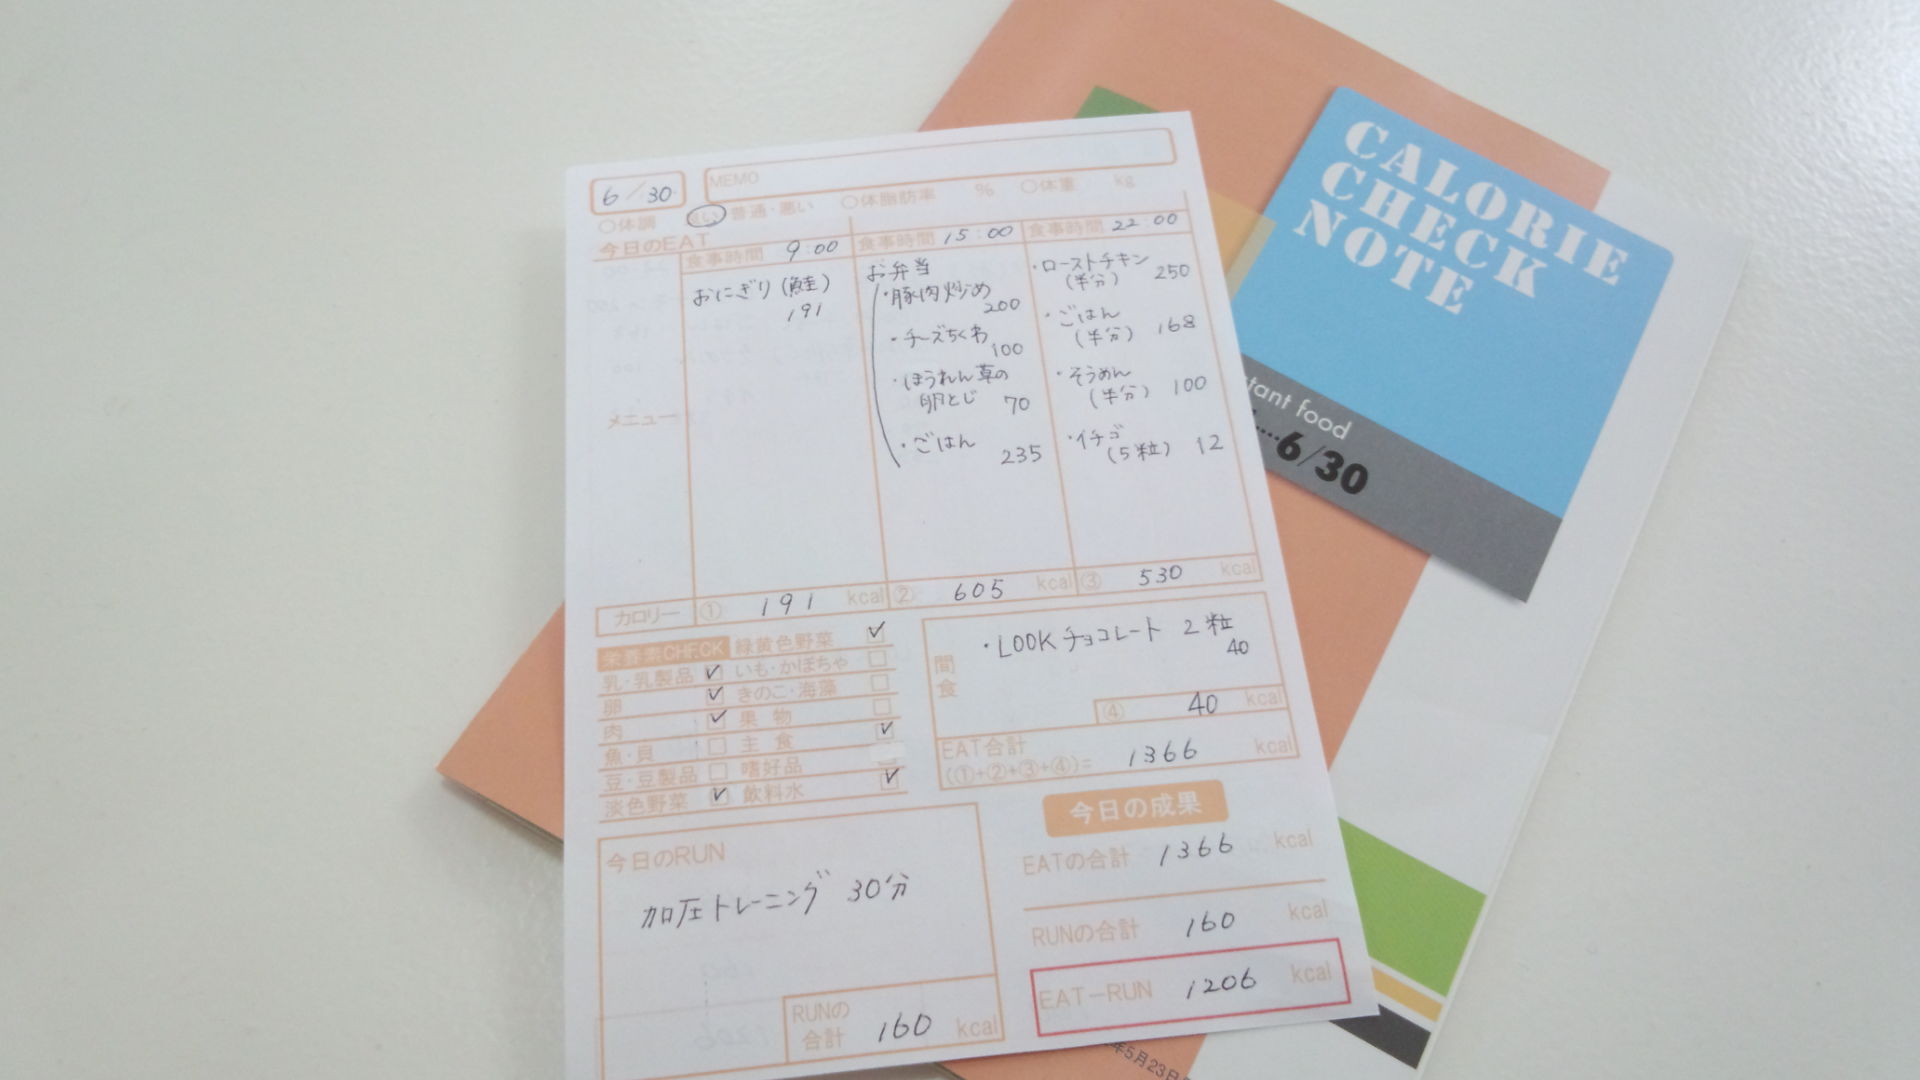 CALORIE
CHECK
NOTE
stant food
6/30
6/30
MEMO
○体調 良い 普通・悪い ○体脂肪率 % ○体重 kg
今日のEAT
食事時間 9:00
おにぎり(鮭)
191
食事時間 15:00
お弁当
・豚肉炒め
200
・チーズちくわ
100
・ほうれん草の
卵とじ 70
・ごはん
235
食事時間 22:00
・ローストチキン
(半分) 250
・ごはん
(半分) 168
・そうめん
(半分) 100
・イチゴ
(5粒) 12
メニュー
カロリー ① 191 kcal ② 605 kcal ③ 530 kcal
栄養素CHECK 緑黄色野菜 ✓
乳・乳製品 ✓ いも・かぼちゃ □
卵 ✓ きのこ・海藻 □
肉 ✓ 果物 □
魚・貝 □ 主食 ✓
豆・豆製品 □ 嗜好品
淡色野菜 ✓ 飲料水 ✓
間食
・LOOKチョコレート 2粒
40
④ 40 kcal
EAT合計
(①+②+③+④)= 1366 kcal
今日のRUN
加圧トレーニング 30分
RUNの
合計 160 kcal
今日の成果
EATの合計 1366 kcal
RUNの合計 160 kcal
EAT-RUN 1206 kcal
年5月23日